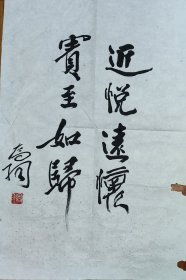 近悦遠懷
賓至如歸